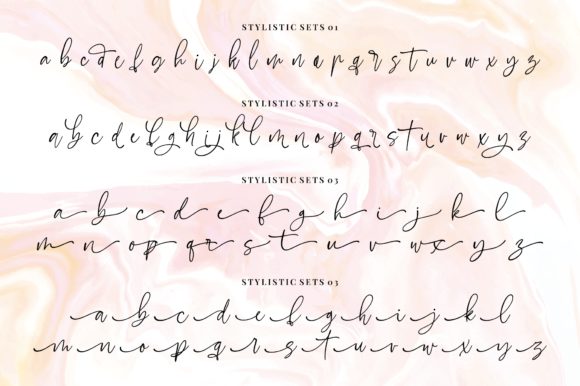 STYLISTIC SETS 01
a b c d e f g h i j k l m n o p q r s t u v w x y z
STYLISTIC SETS 02
a b c d e f g h i j k l m n o p q r s t u v w x y z
STYLISTIC SETS 03
a b c d e f g h i j k l
m n o p q r s t u v w x y z
STYLISTIC SETS 03
a b c d e f g h i j k l
m n o p q r s t u v w x y z